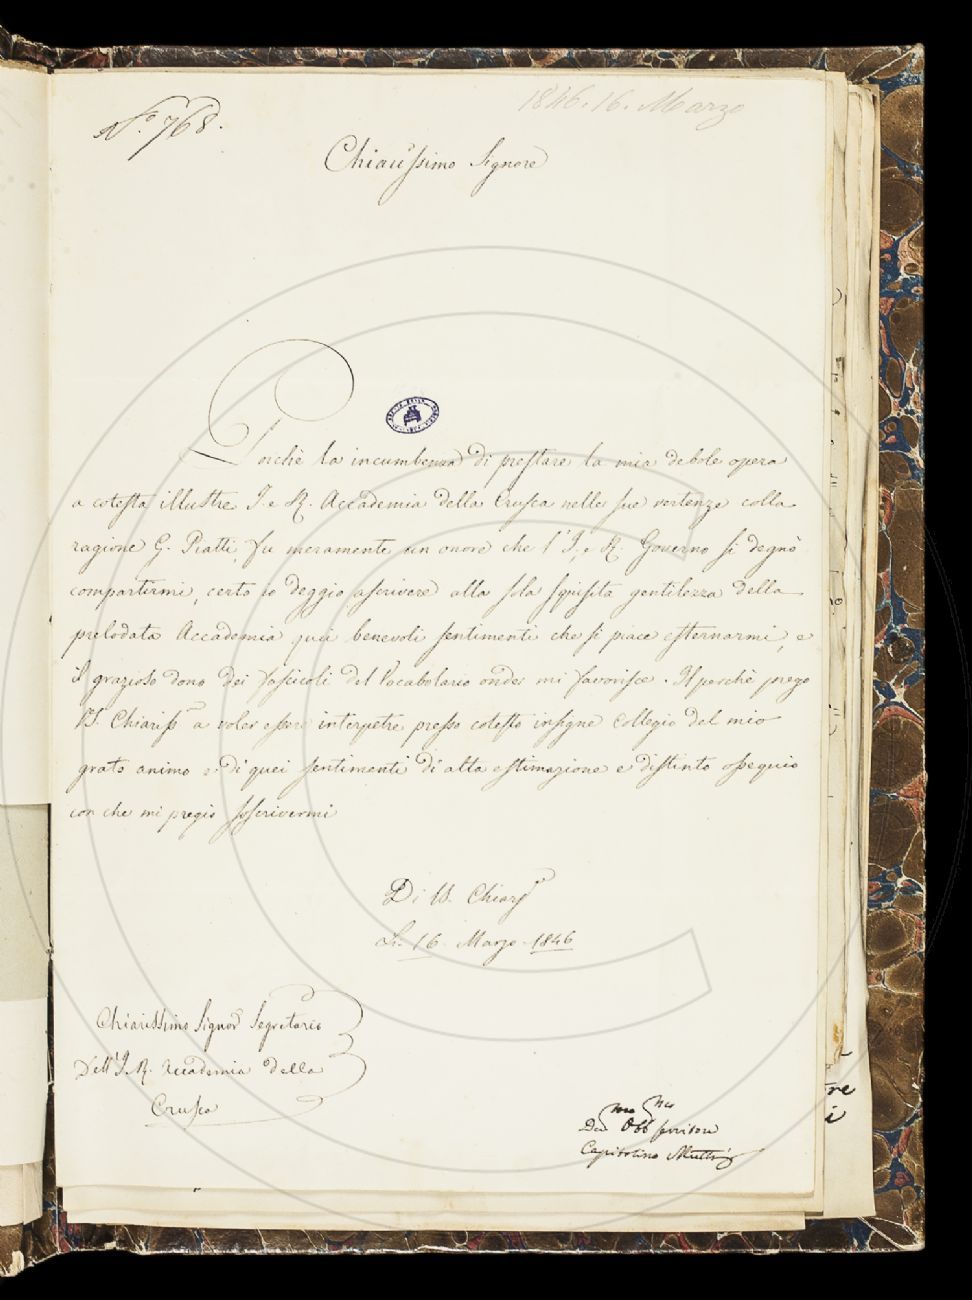 N.° 768.
1846. 16. Marzo
Chiarissimo Signore
Perchè la incumbenza di prestare la mia debole opera
a cotesta illustre I. e R. Accademia della Crusca nelle sue vertenze colla
ragione G. Piatti, fu meramente un onore che l'I. e R. Governo si degnò
compartirmi, certo io deggio ascrivere alla sola squisita gentilezza della
prelodata Accademia quei benevoli sentimenti che si piace esternarmi, e
il grazioso dono dei fascicoli del Vocabolario onde mi favorisce. Il perchè prego
VS. Chiariss a voler essere interpetre presso cotesto insigne Collegio del mio
grato animo e di quei sentimenti di alta estimazione e distinto ossequio
con che mi pregio soscrivermi
Di VS. Chiars
Li 16. Marzo 1846
Chiarissimo Signor Segretario
Dell'I. R. Accademia della
Crusca
Dev mo Obb mo servitore
Capitolino
tre
i